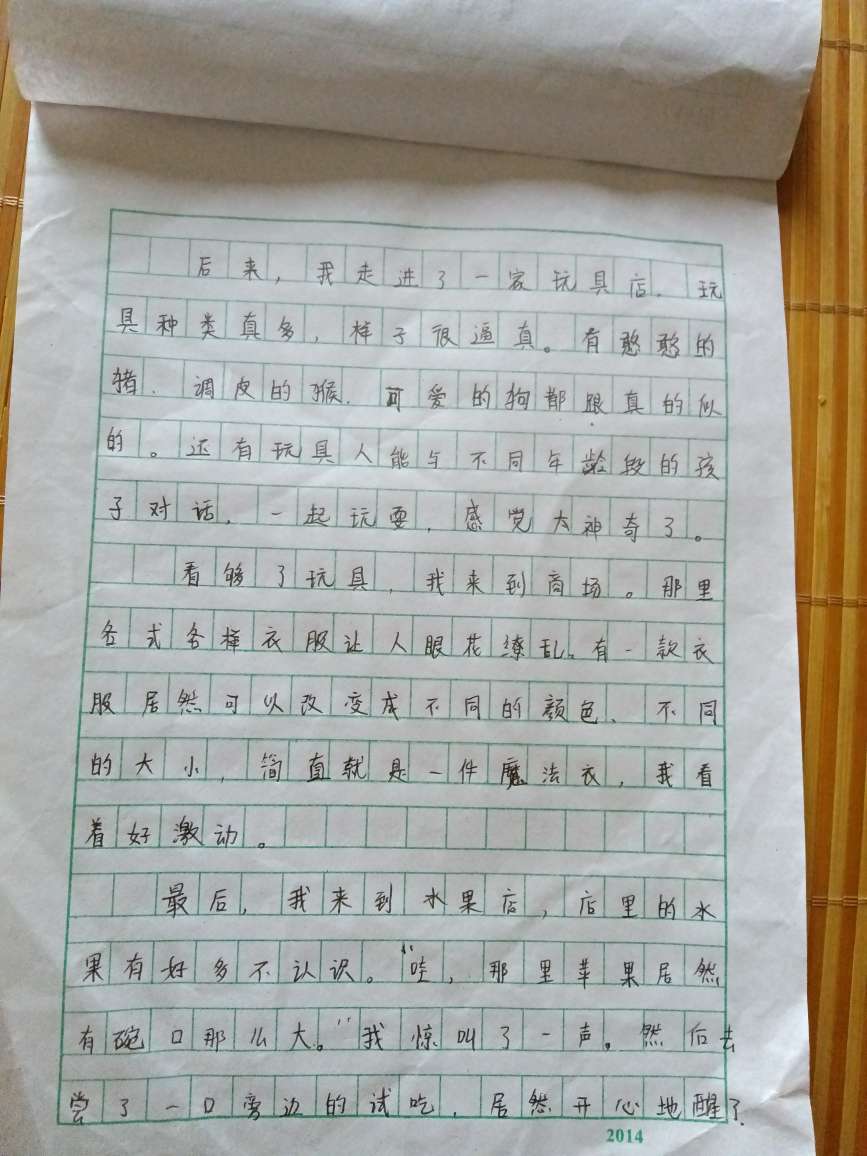 后来，我走进了一家玩具店，玩
具种类真多，样子很逼真。有憨憨的
猪、调皮的猴、可爱的狗都跟真的似
的。还有玩具人能与不同年龄段的孩
子对话，一起玩耍，感觉太神奇了。
看够了玩具，我来到商场。那里
各式各样衣服让人眼花缭乱。有一款衣
服居然可以改变成不同的颜色、不同
的大小，简直就是一件魔法衣，我看
着好激动。
最后，我来到水果店，店里的水
果有好多不认识。“哇，那里苹果居然
有碗口那么大。”我惊叫了一声。然后去
尝了一口旁边的试吃，居然开心地醒了.
2014